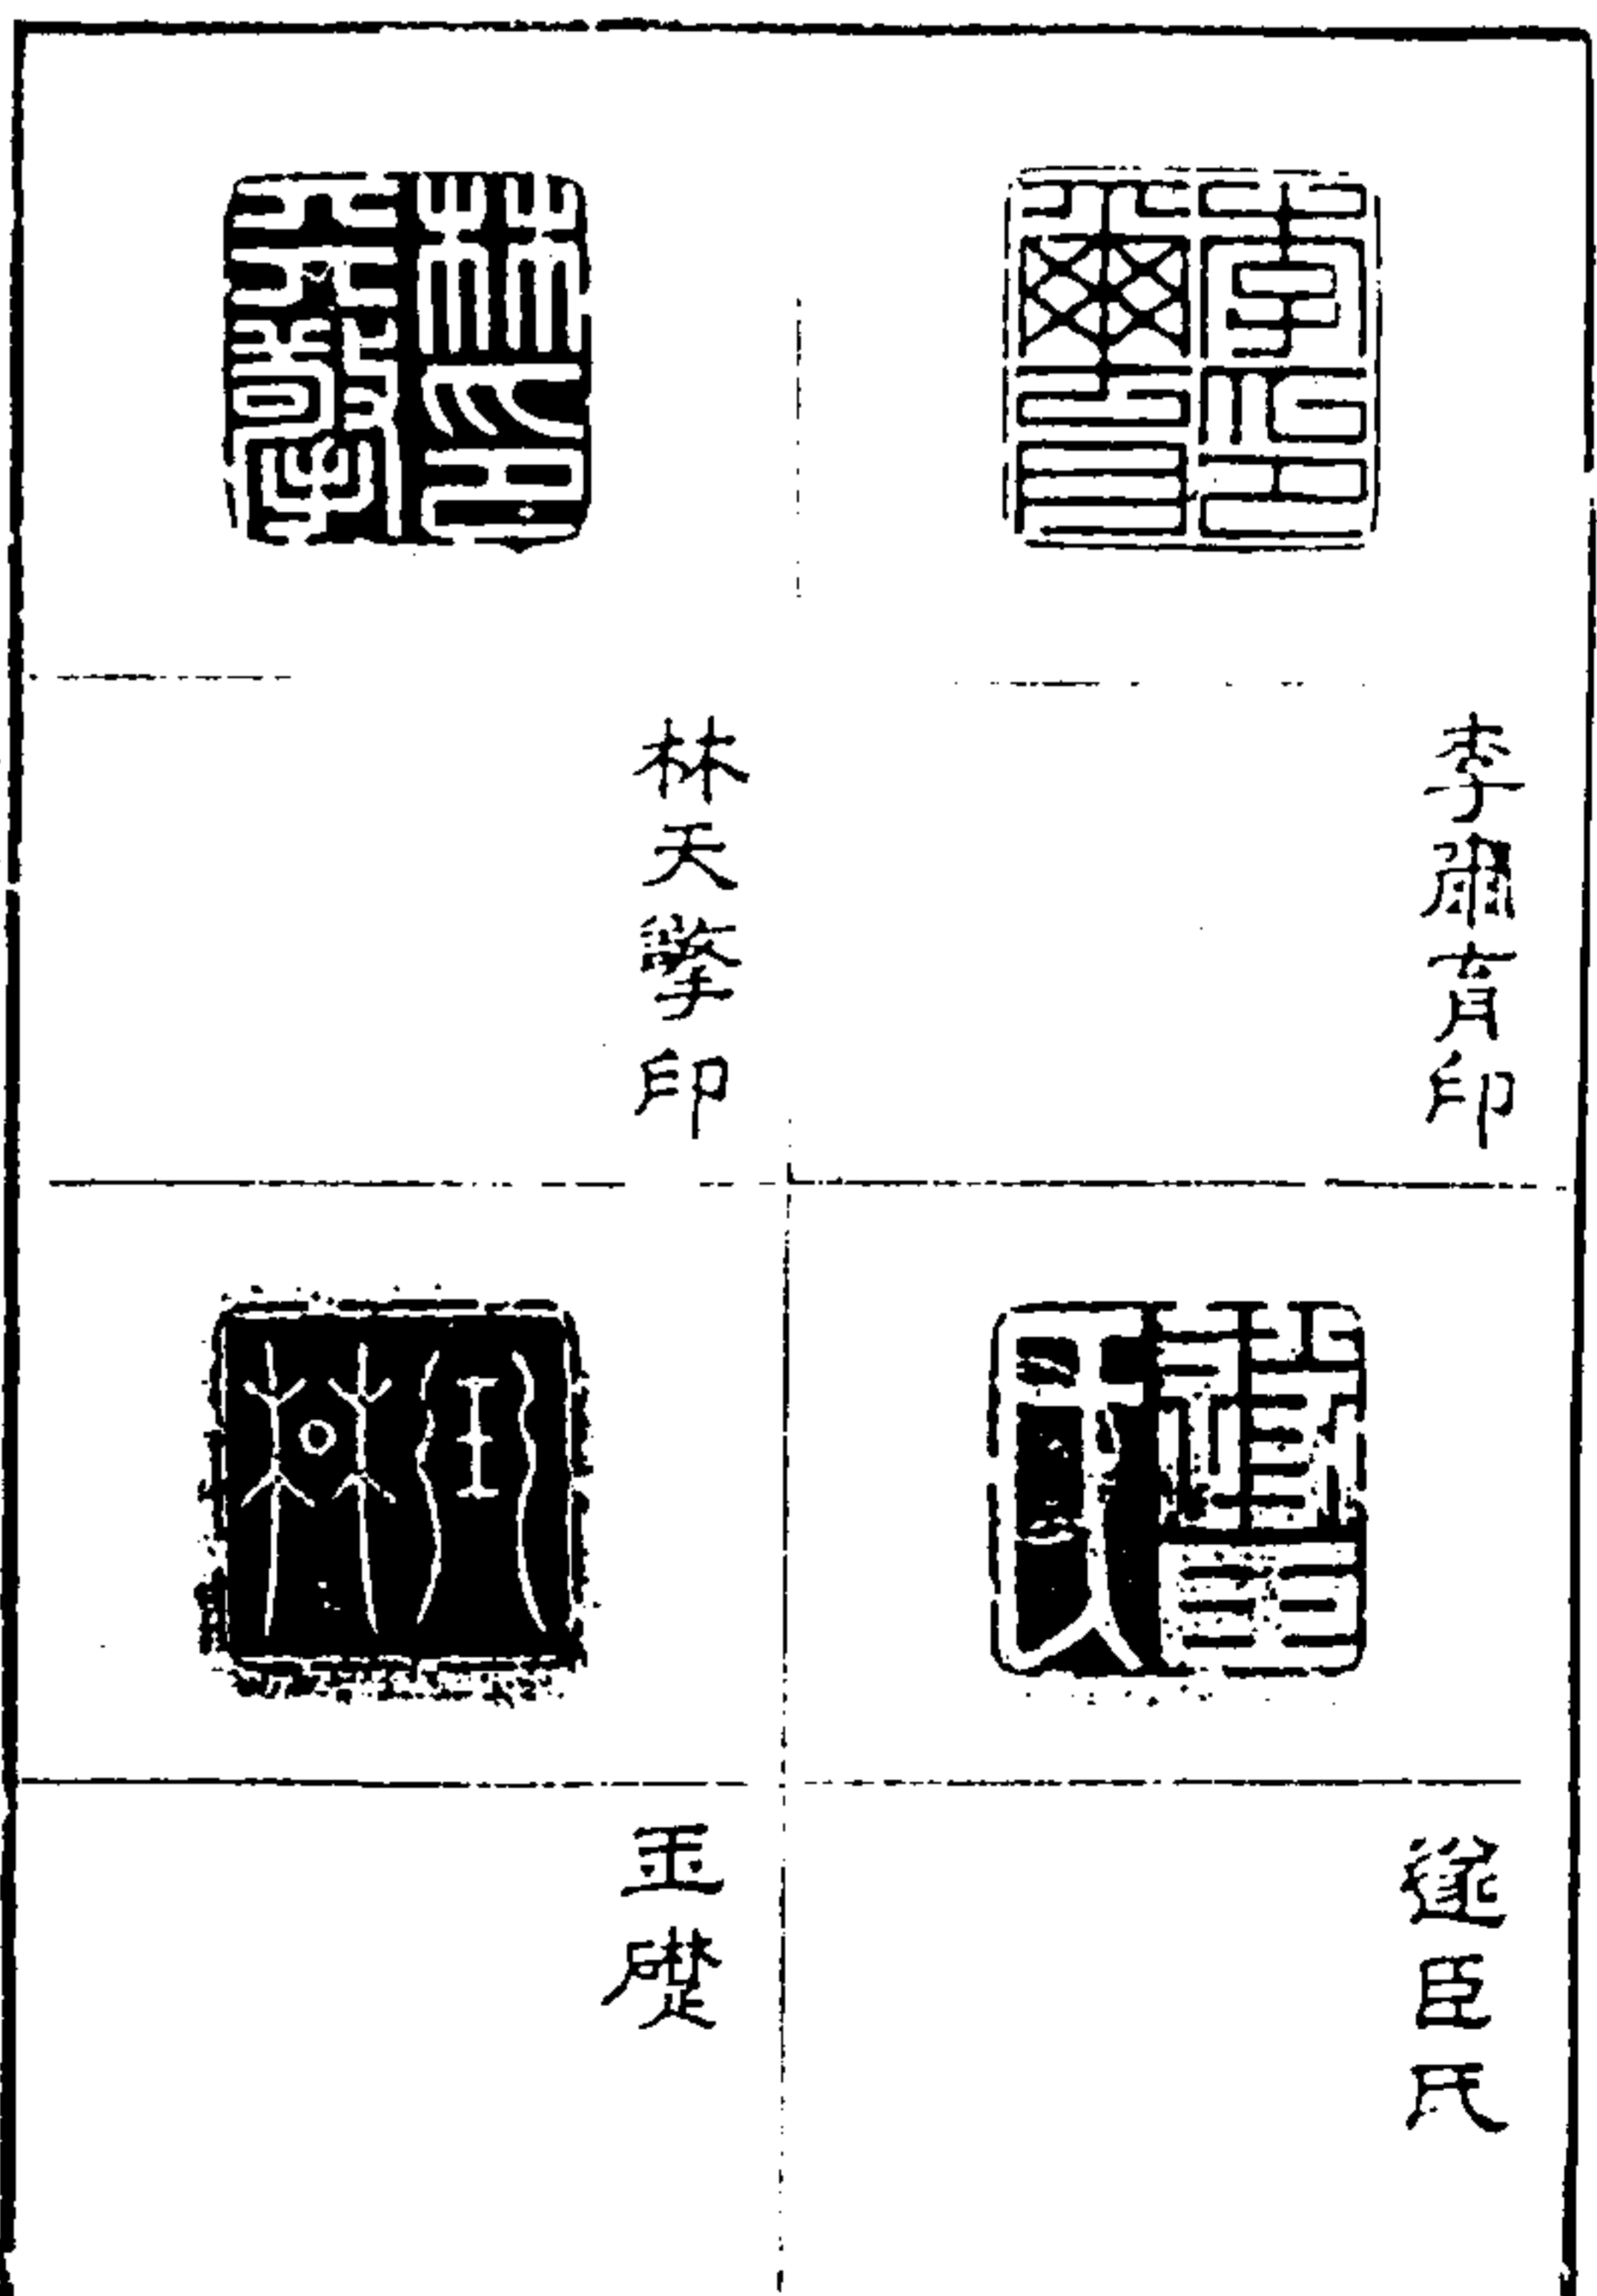 李爾育印
林天擎印
臣氏
玉礎